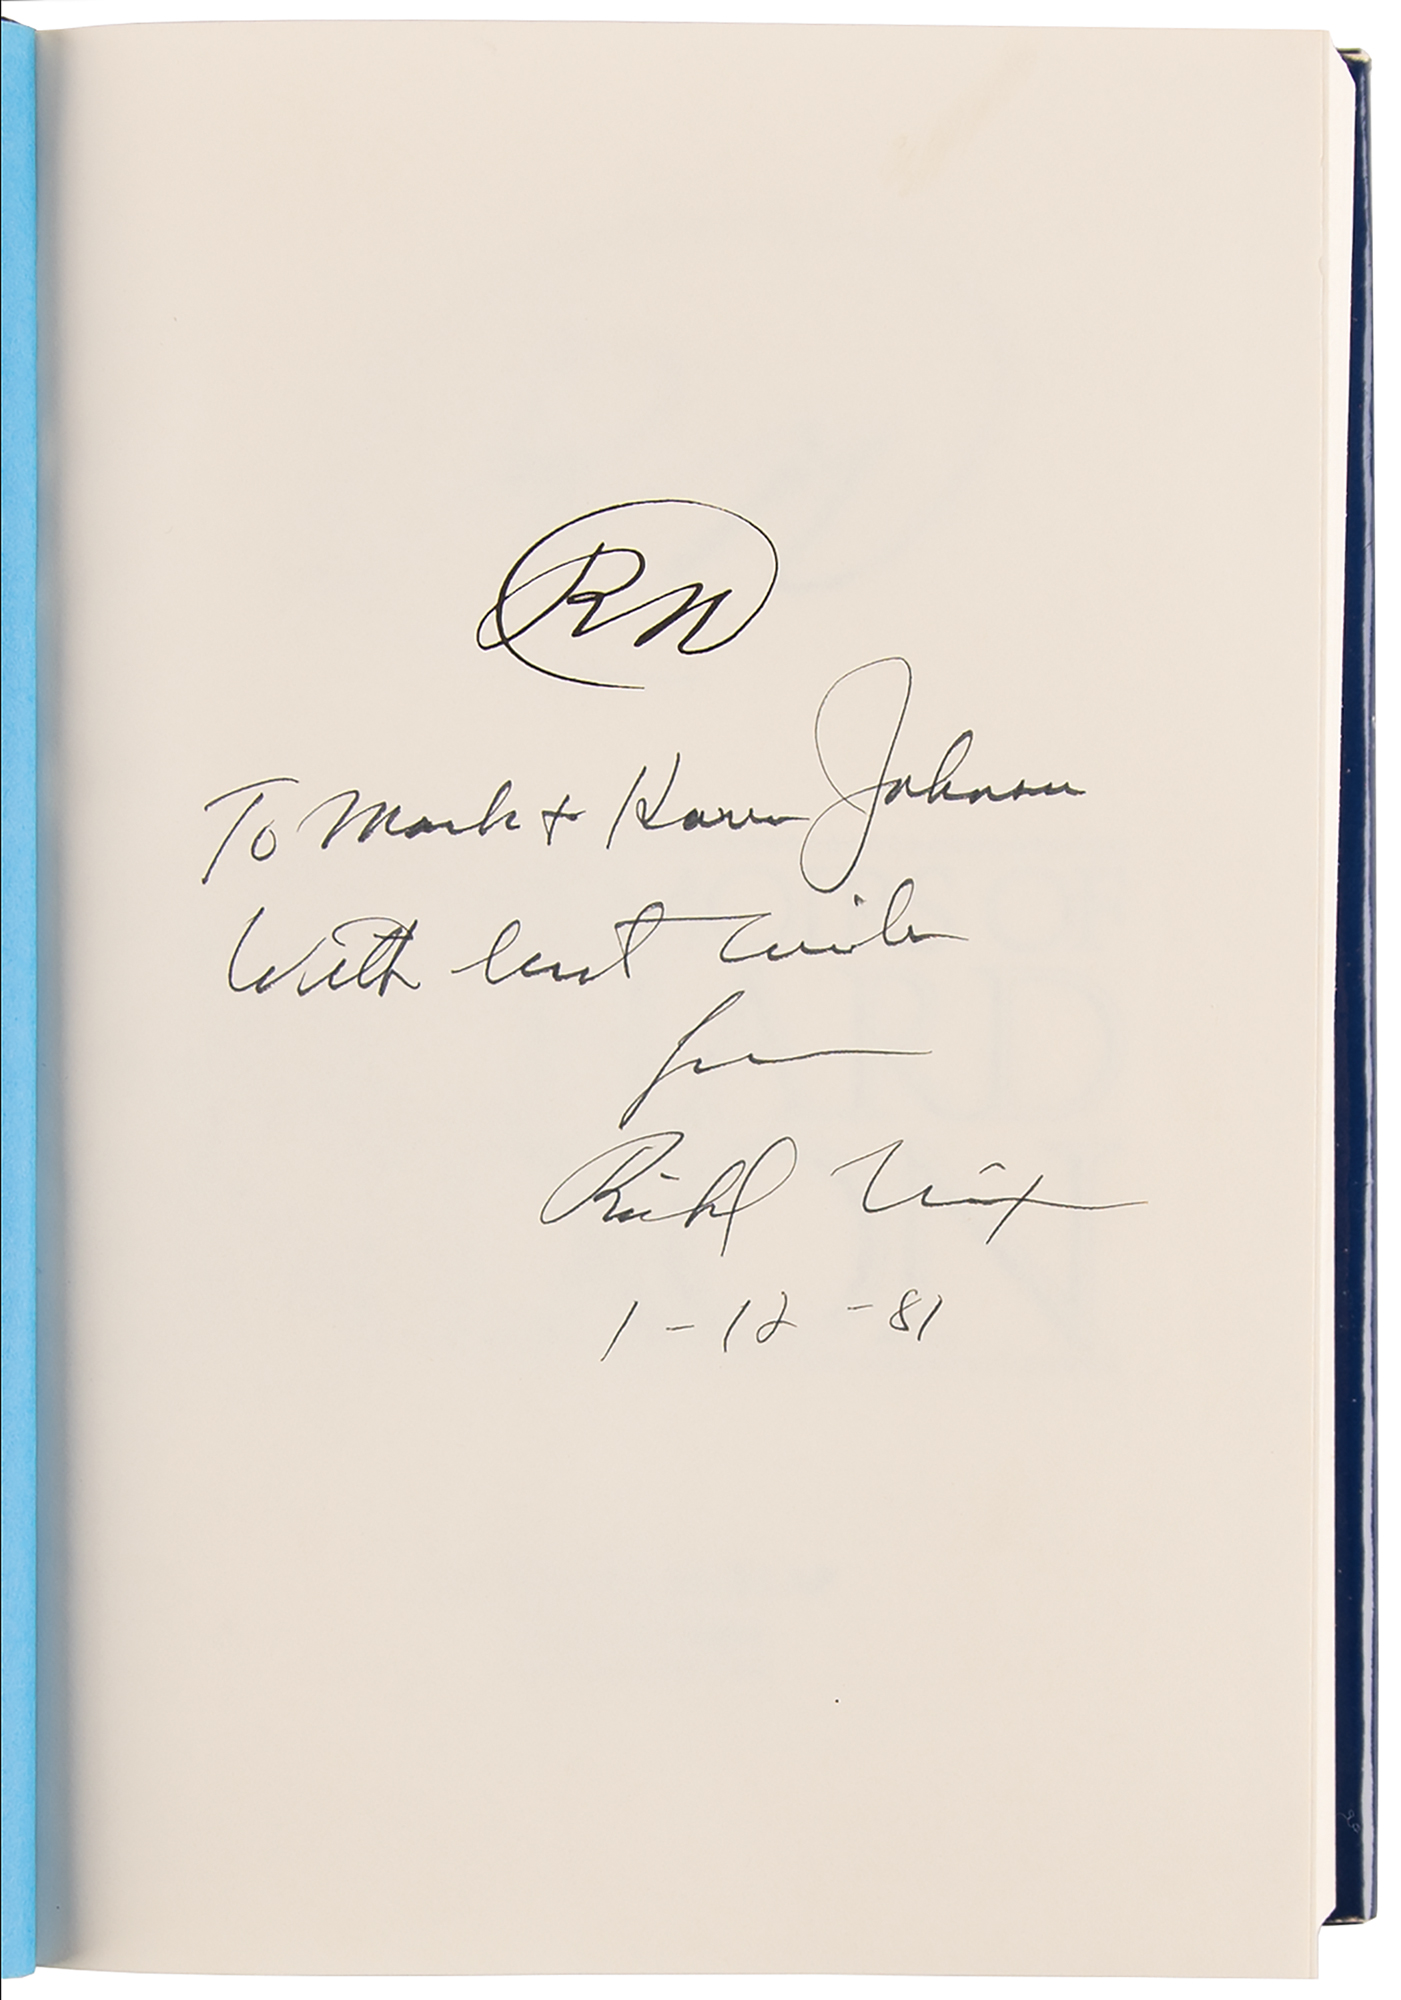 RN
To Mark + Karen Johnson
With best wishes
from
Richard Nixon
1-12-81